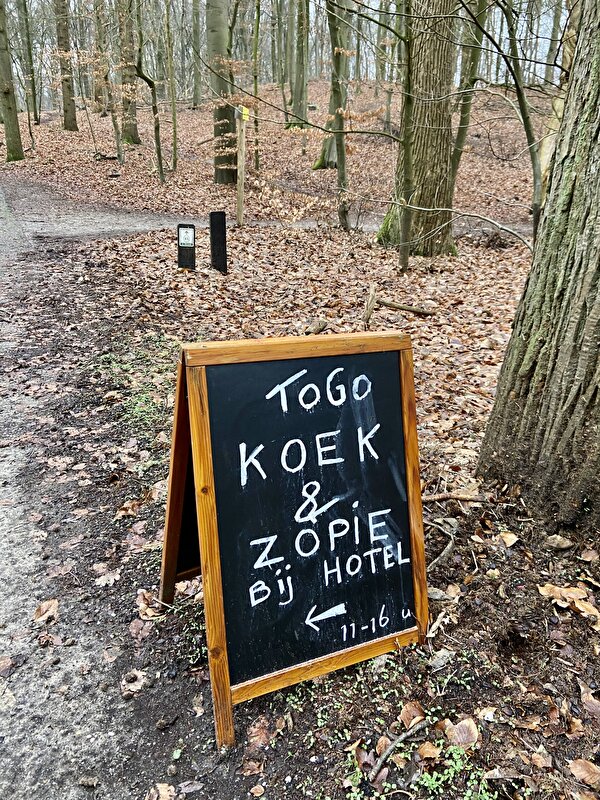 TOGO
KOEK
&
ZOPIE
Bij HOTEL
←
11-16 u